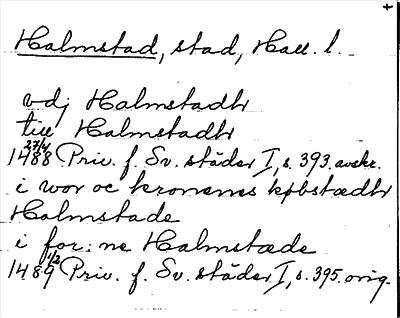 +
Halmstad, stad, Hall. l.
vdj Halmstadhr
till Halmstadhr
27/4
1488 Priv. f. Sv. städer I, s. 393. avskr.
i wor oc kronenes købstædhr
Halmstade
i for: ne Halmstæde
1/2
1489 Priv. f. Sv. städer I, s. 395. orig.